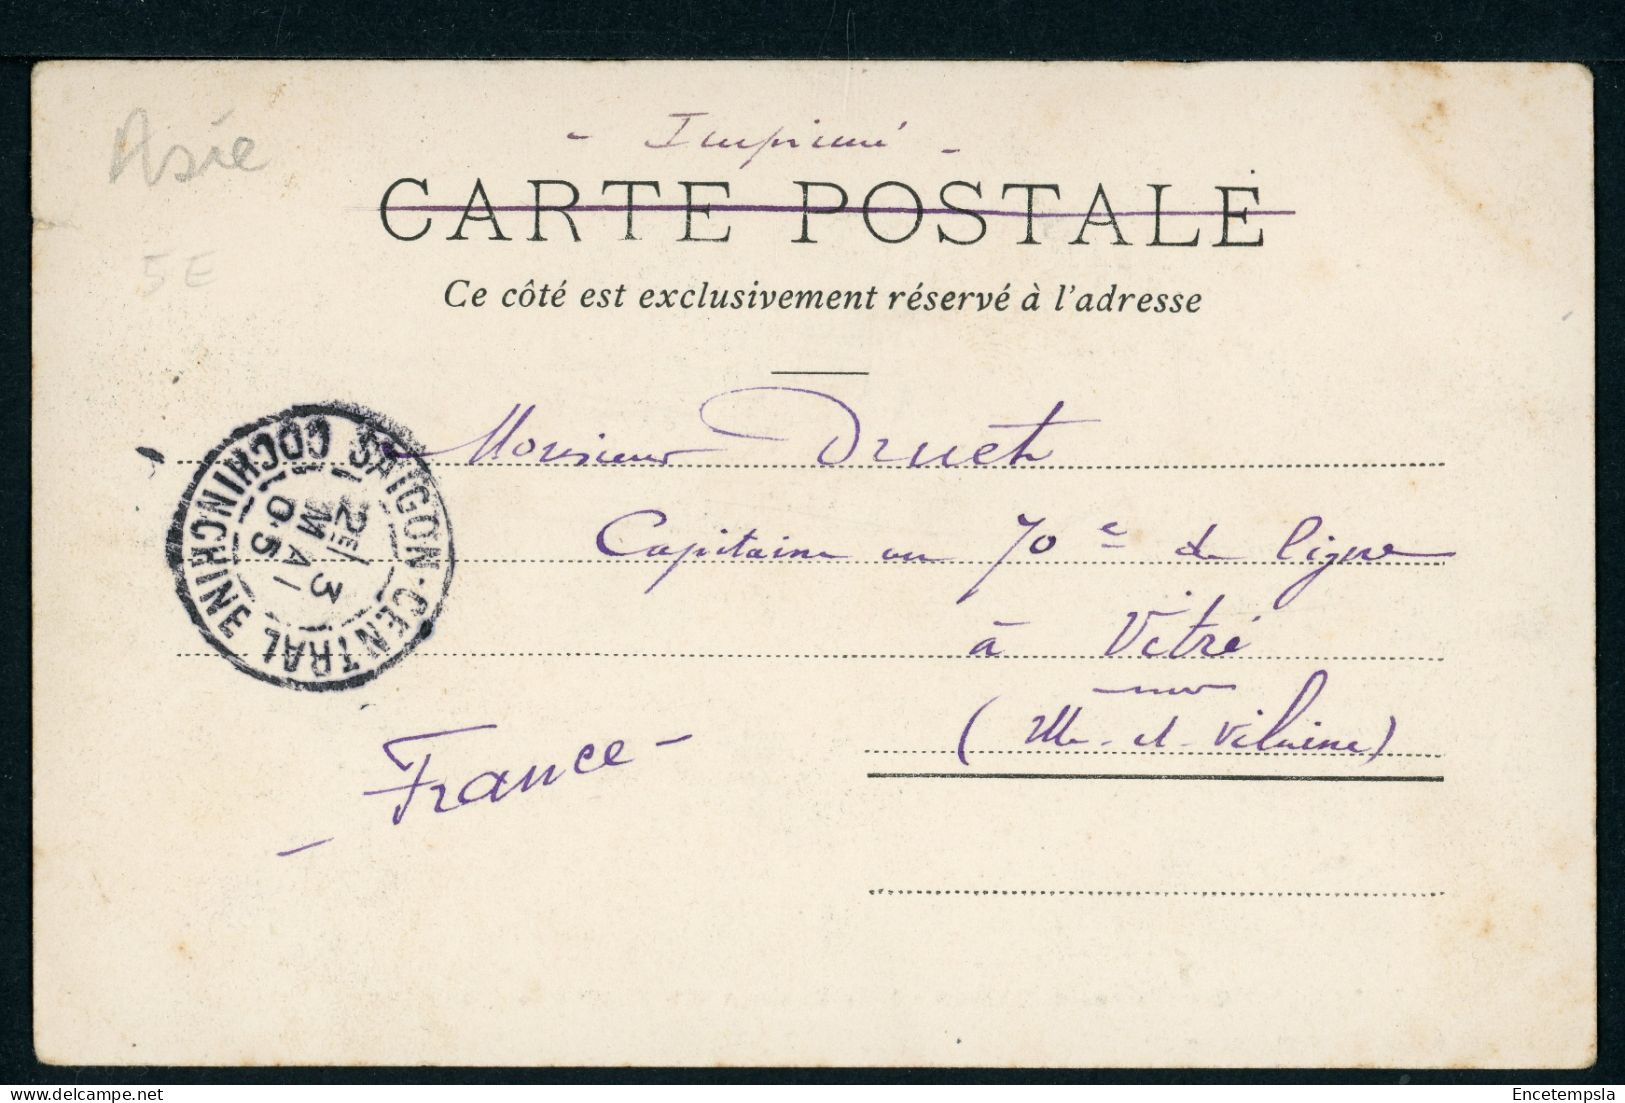 Asie
5E
- Imprimé -
CARTE POSTALE
Ce côté est exclusivement réservé à l'adresse
Monsieur Druet
Capitaine au 70e de ligne
à Vitré
(Ille-et-Vilaine)
- France -
SAIGON-CENTRAL COCHINCHINE
2E/ 3
MAI
05
Encetempsla